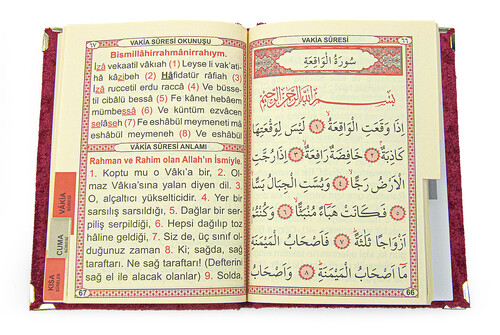 ٦٧
VAKİA SÛRESİ OKUNUŞU
Bismillâhirrahmânirrahıym.
İzâ vekaatil vâkıah (1) Leyse li vak'ati-
hâ kâzibeh (2) Hâfidatür râfiah (3)
İzâ ruccetil erdu raccâ (4) Ve büsse-
til cibâlü bessâ (5) Fe kânet hebâem
mümbessâ (6) Ve küntüm ezvâcen
selâseh (7) Fe eshâbül meymeneti mâ
eshâbül meymeneh (8) Ve eshâbül
VAKİA SÛRESİ ANLAMI
Rahman ve Rahim olan Allah'ın İsmiyle.
1. Koptu mu o Vâkı'a bir, 2. Ol-
maz Vâkıa'sına yalan diyen dil. 3.
O, alçaltıcı yükselticidir. 4. Yer bir
sarsılış sarsıldığı, 5. Dağlar bir ser-
piliş serpildiği, 6. Hepsi dağılıp toz
hâline geldiği, 7. Siz de, üç sınıf ol-
duğunuz zaman 8. Ki; sağda, sağ
taraftarı. Ne sağ taraftarı! (Defterini
sağ el ile alacak olanlar) 9. Solda.
67
VÂKIA
SÛRESİ
CUMA
SÛRESİ
KISA
SÛRELER
VAKİA SÛRESİ
٦٦
سُورَةُ الْوَاقِعَةِ
بِسْمِ اللهِ الرَّحْمٰنِ الرَّحِيمِ
اِذَا وَقَعَتِ الْوَاقِعَةُ ﴿١﴾ لَيْسَ لِوَقْعَتِهَا
كَاذِبَةٌ ﴿٢﴾ خَافِضَةٌ رَافِعَةٌ ﴿٣﴾ اِذَا رُجَّتِ
الْاَرْضُ رَجًّا ﴿٤﴾ وَبُسَّتِ الْجِبَالُ بَسًّا
﴿٥﴾ فَكَانَتْ هَبَاءً مُنْبَثًّا ﴿٦﴾ وَكُنْتُمْ
اَزْوَاجًا ثَلٰثَةً ﴿٧﴾ فَاَصْحَابُ الْمَيْمَنَةِ
مَا اَصْحَابُ الْمَيْمَنَةِ ﴿٨﴾ وَاَصْحَابُ
66